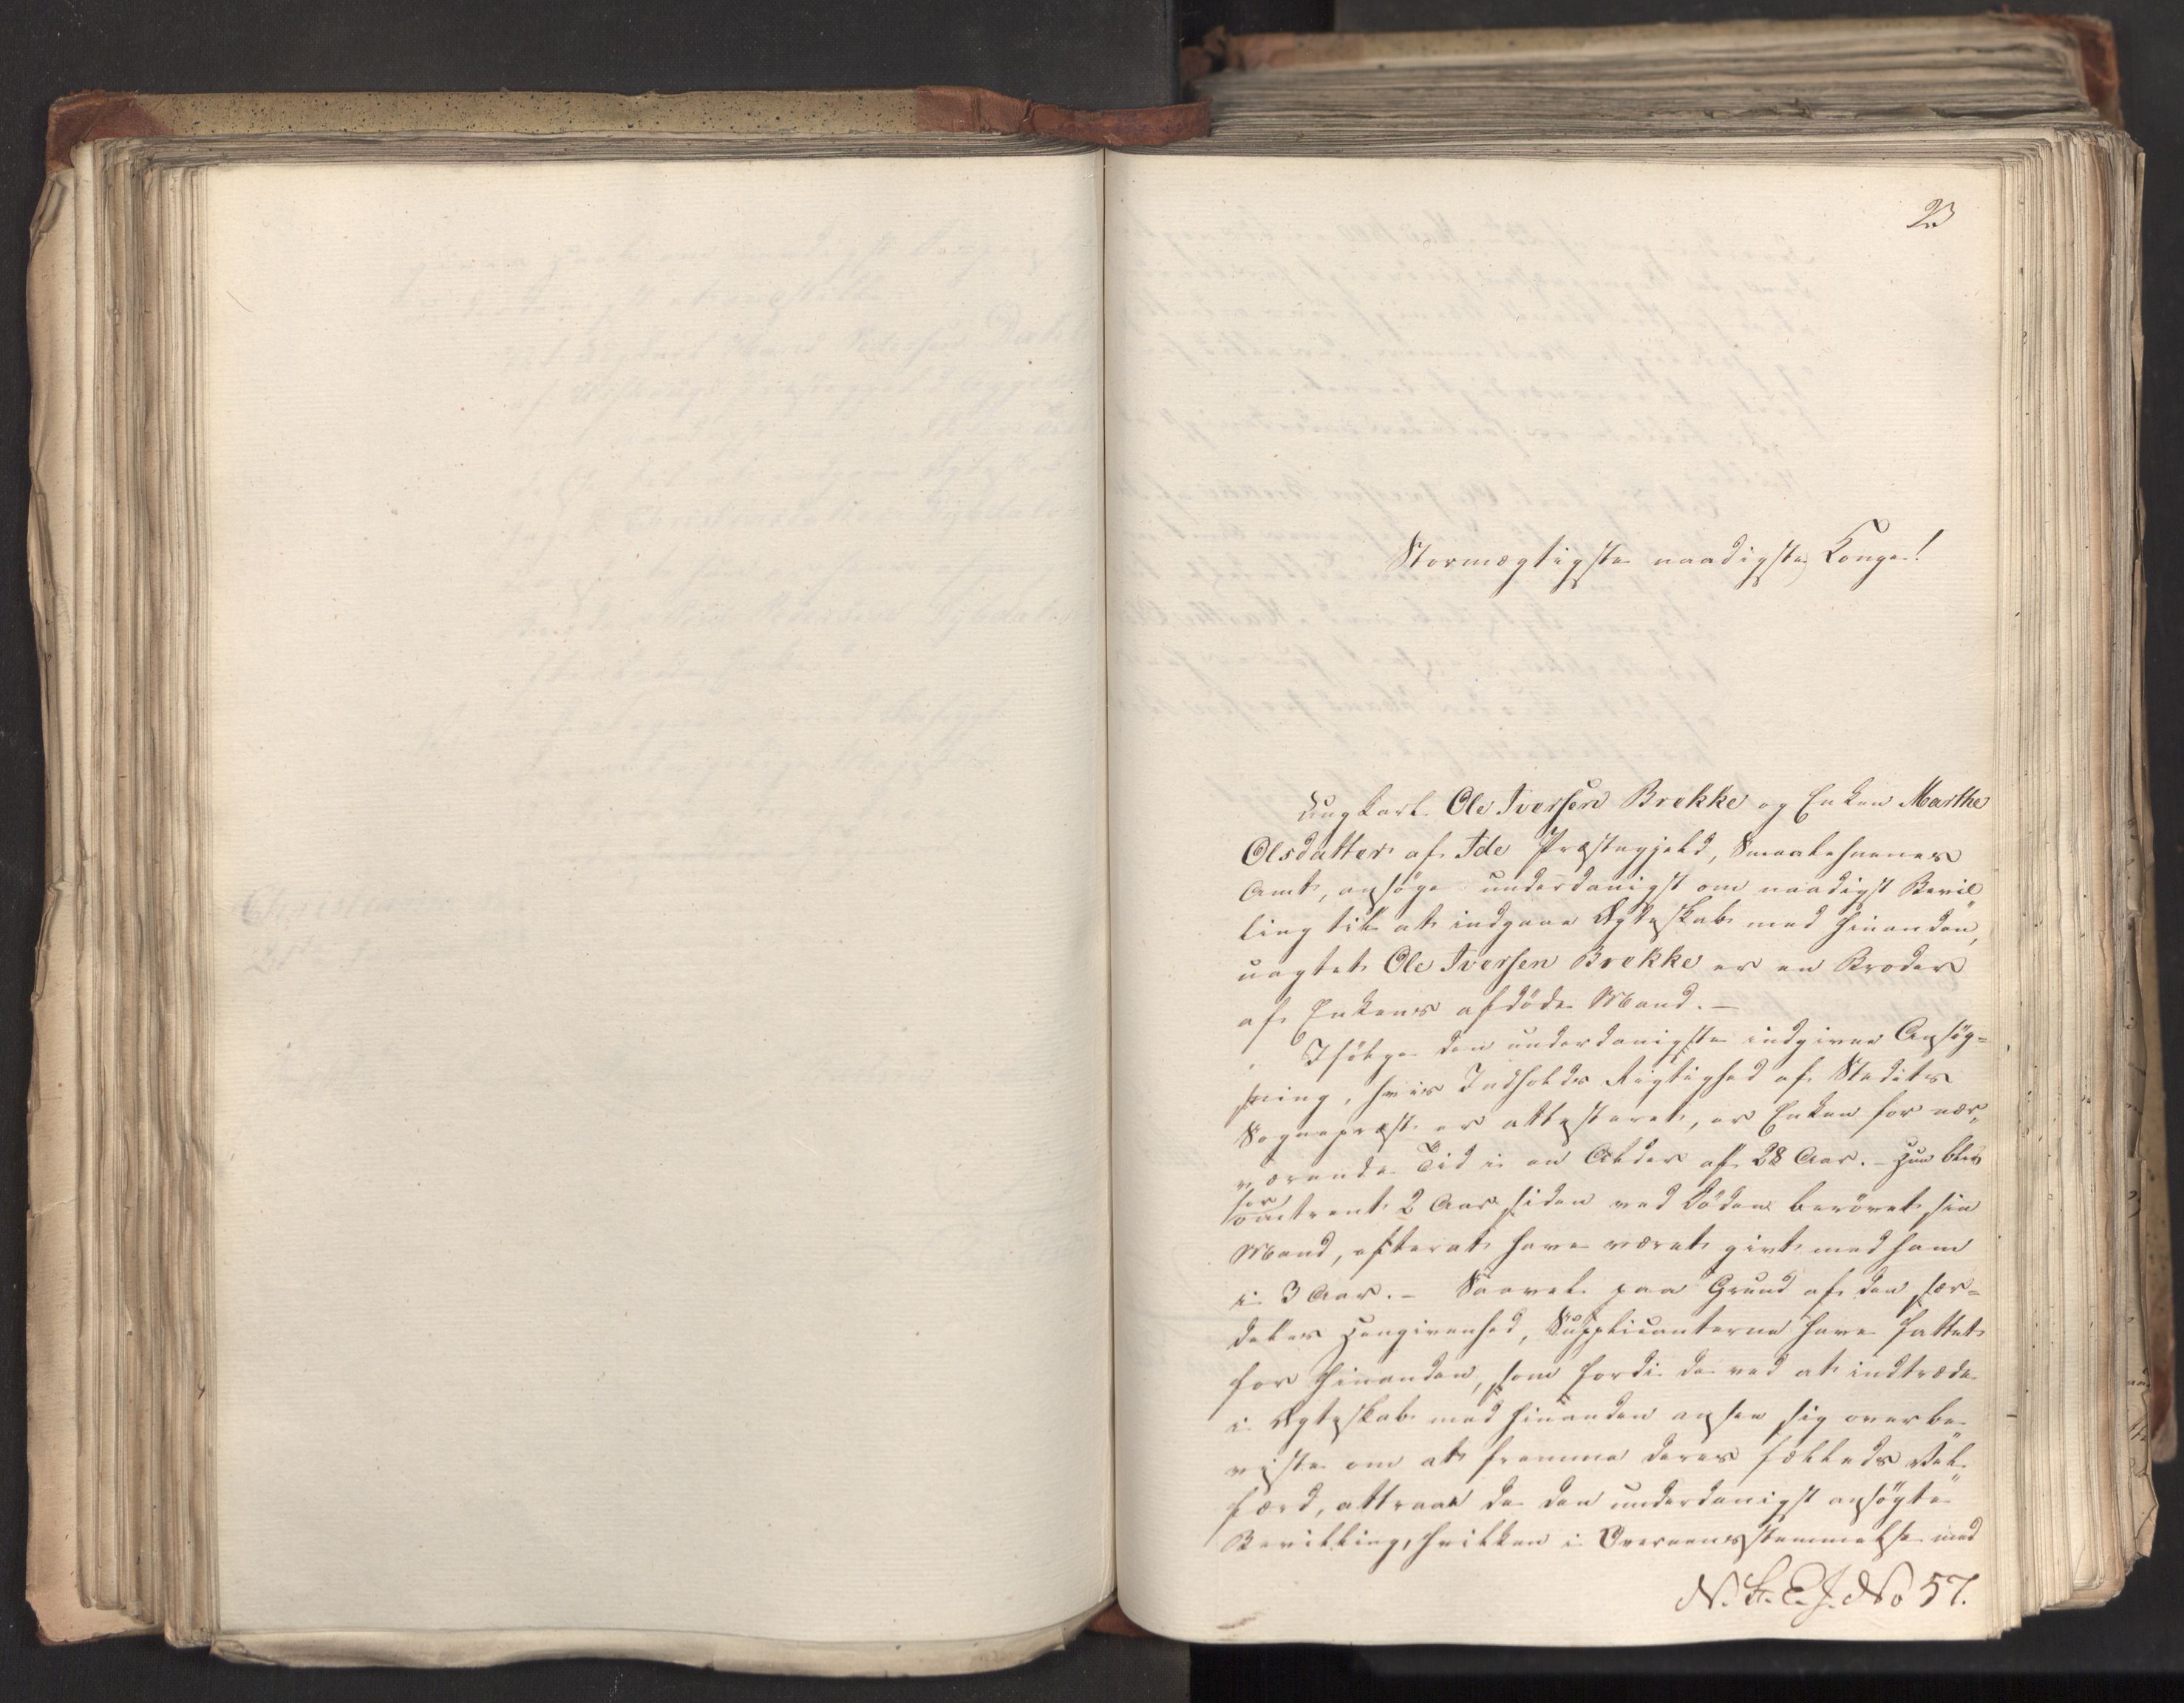 23
Stormægtigste naadigste Konge!
Ungkarl Ole Iversen Brekke og Enken Marthe
Olsdatter af Ide Præstegjeld, Smaalehnenes
Amt, ansøge underdanigst om naadigst Bevil„
ling til at indgaae Ægteskab med hinanden,
uagtet Ole Iversen Brekke er en Broder
af Enkens afdøde Mand. —
Ifølge den underdanigste indgivne Ansøg=
ning, hvis Indholds Rigtighed af Stedets
Sognepræst er attesteret, er Enken for nær„
værende Tid i en Alder af 28 Aar. – Hun blev
for
omtrent 2 Aar siden ved Døden berøvet sin
Mand, efterat have været givt med ham
i 3 Aar. – Saavel paa Grund af den sær=
deles Hengivenhed, Supplicanterne have fattet
for hinanden, som fordi de ved at indtræde
i Ægteskab med hinanden ansee sig overbe„
viste om at fremme deres fælleds Vel„
færd, attraae de den underdanigst ansøgte
Bevilling, hvilken i Overeensstemmelse med
N. No 57.